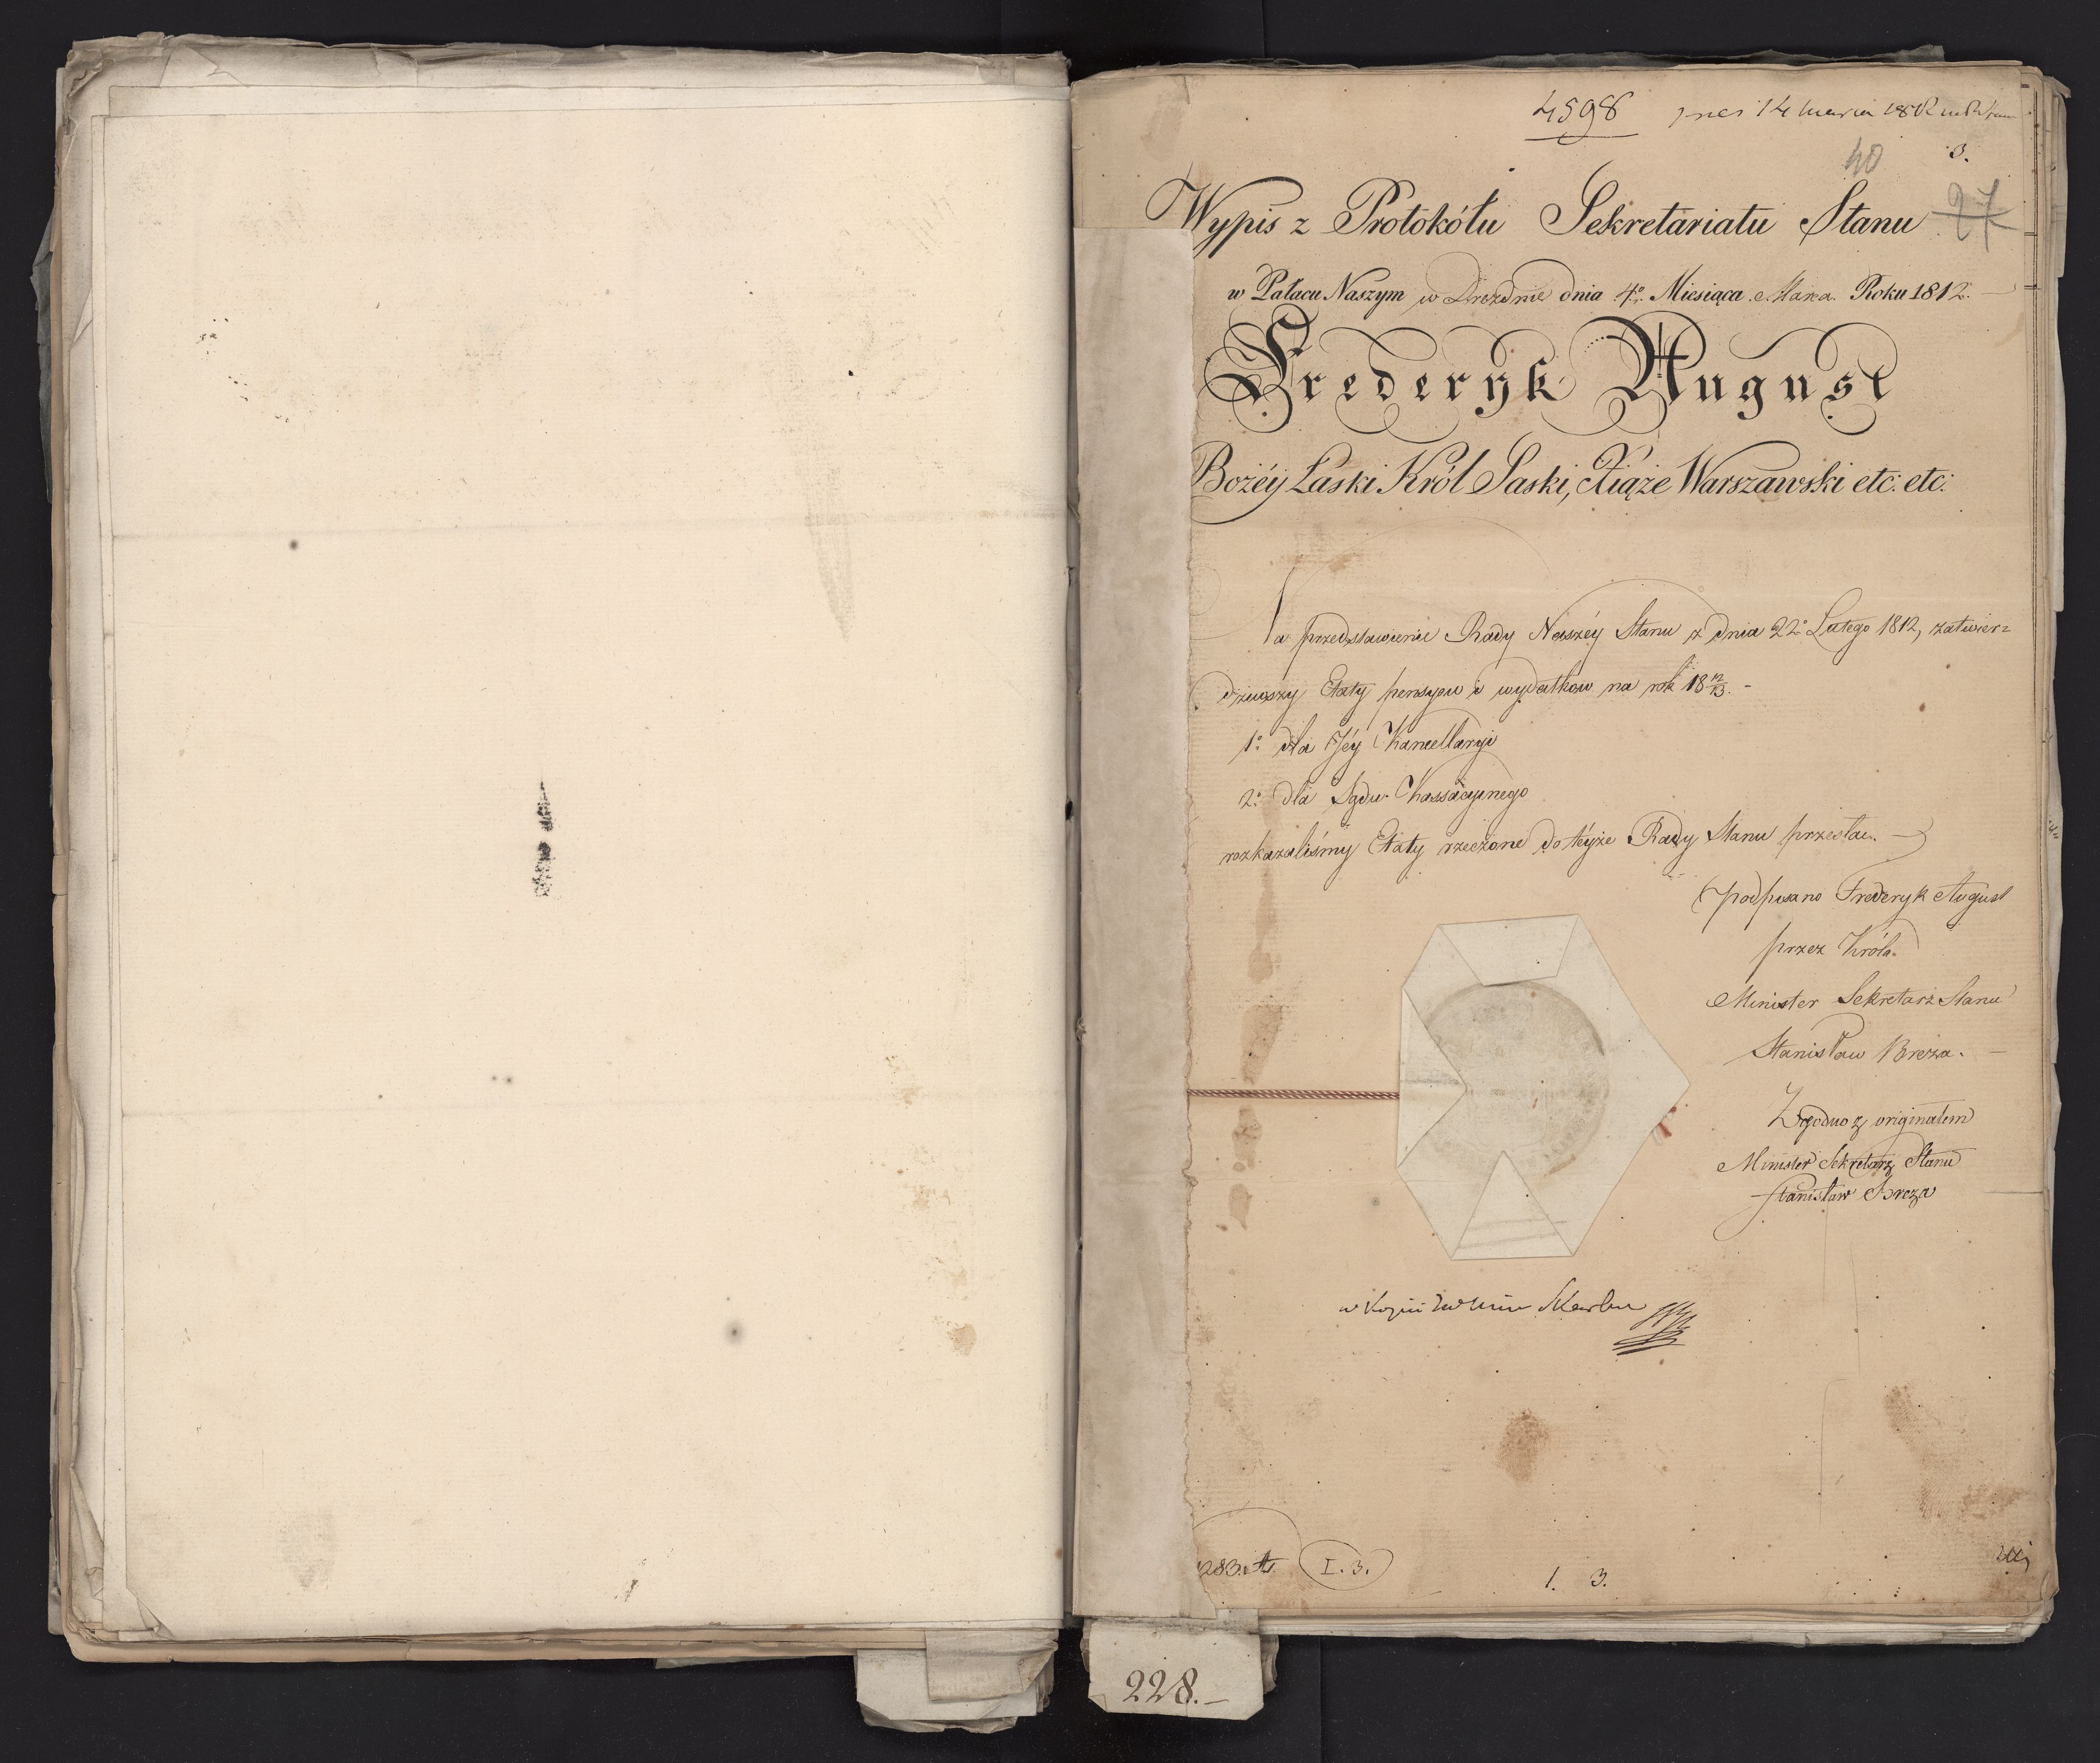 4598 14 Marca 1812
40 3.
Wypis z Protokółu Sekretariatu Stanu 27
w Pałacu Naszym w Dreznie dnia 4º Miesiąca Marca Roku 1812.
Frederyk August
Bożéy Łaski Król Saski, Xiąże Warszawski etc: etc:
Na przedstawienie Rady Naszéy Stanu z dnia 22º Lutego 1812, zatwier=
dziwszy Etaty pensyow i wydatkow na rok 18 12/13. -
1º dla Jéy Kancellaryi
2º dla Sądu Kassacyinego
rozkazaliśmy Etaty rzeczone do téyże Rady Stanu przesłać. —
(podpisano Frederyk August
przez Króla
Minister Sekretarz Stanu
Stanisław Breza. —
Zgodno z originałem
Minister Sekretarz Stanu
Stanisław Breza
w Kopii Skarbu
1283. I.3.
1. 3.
228.-